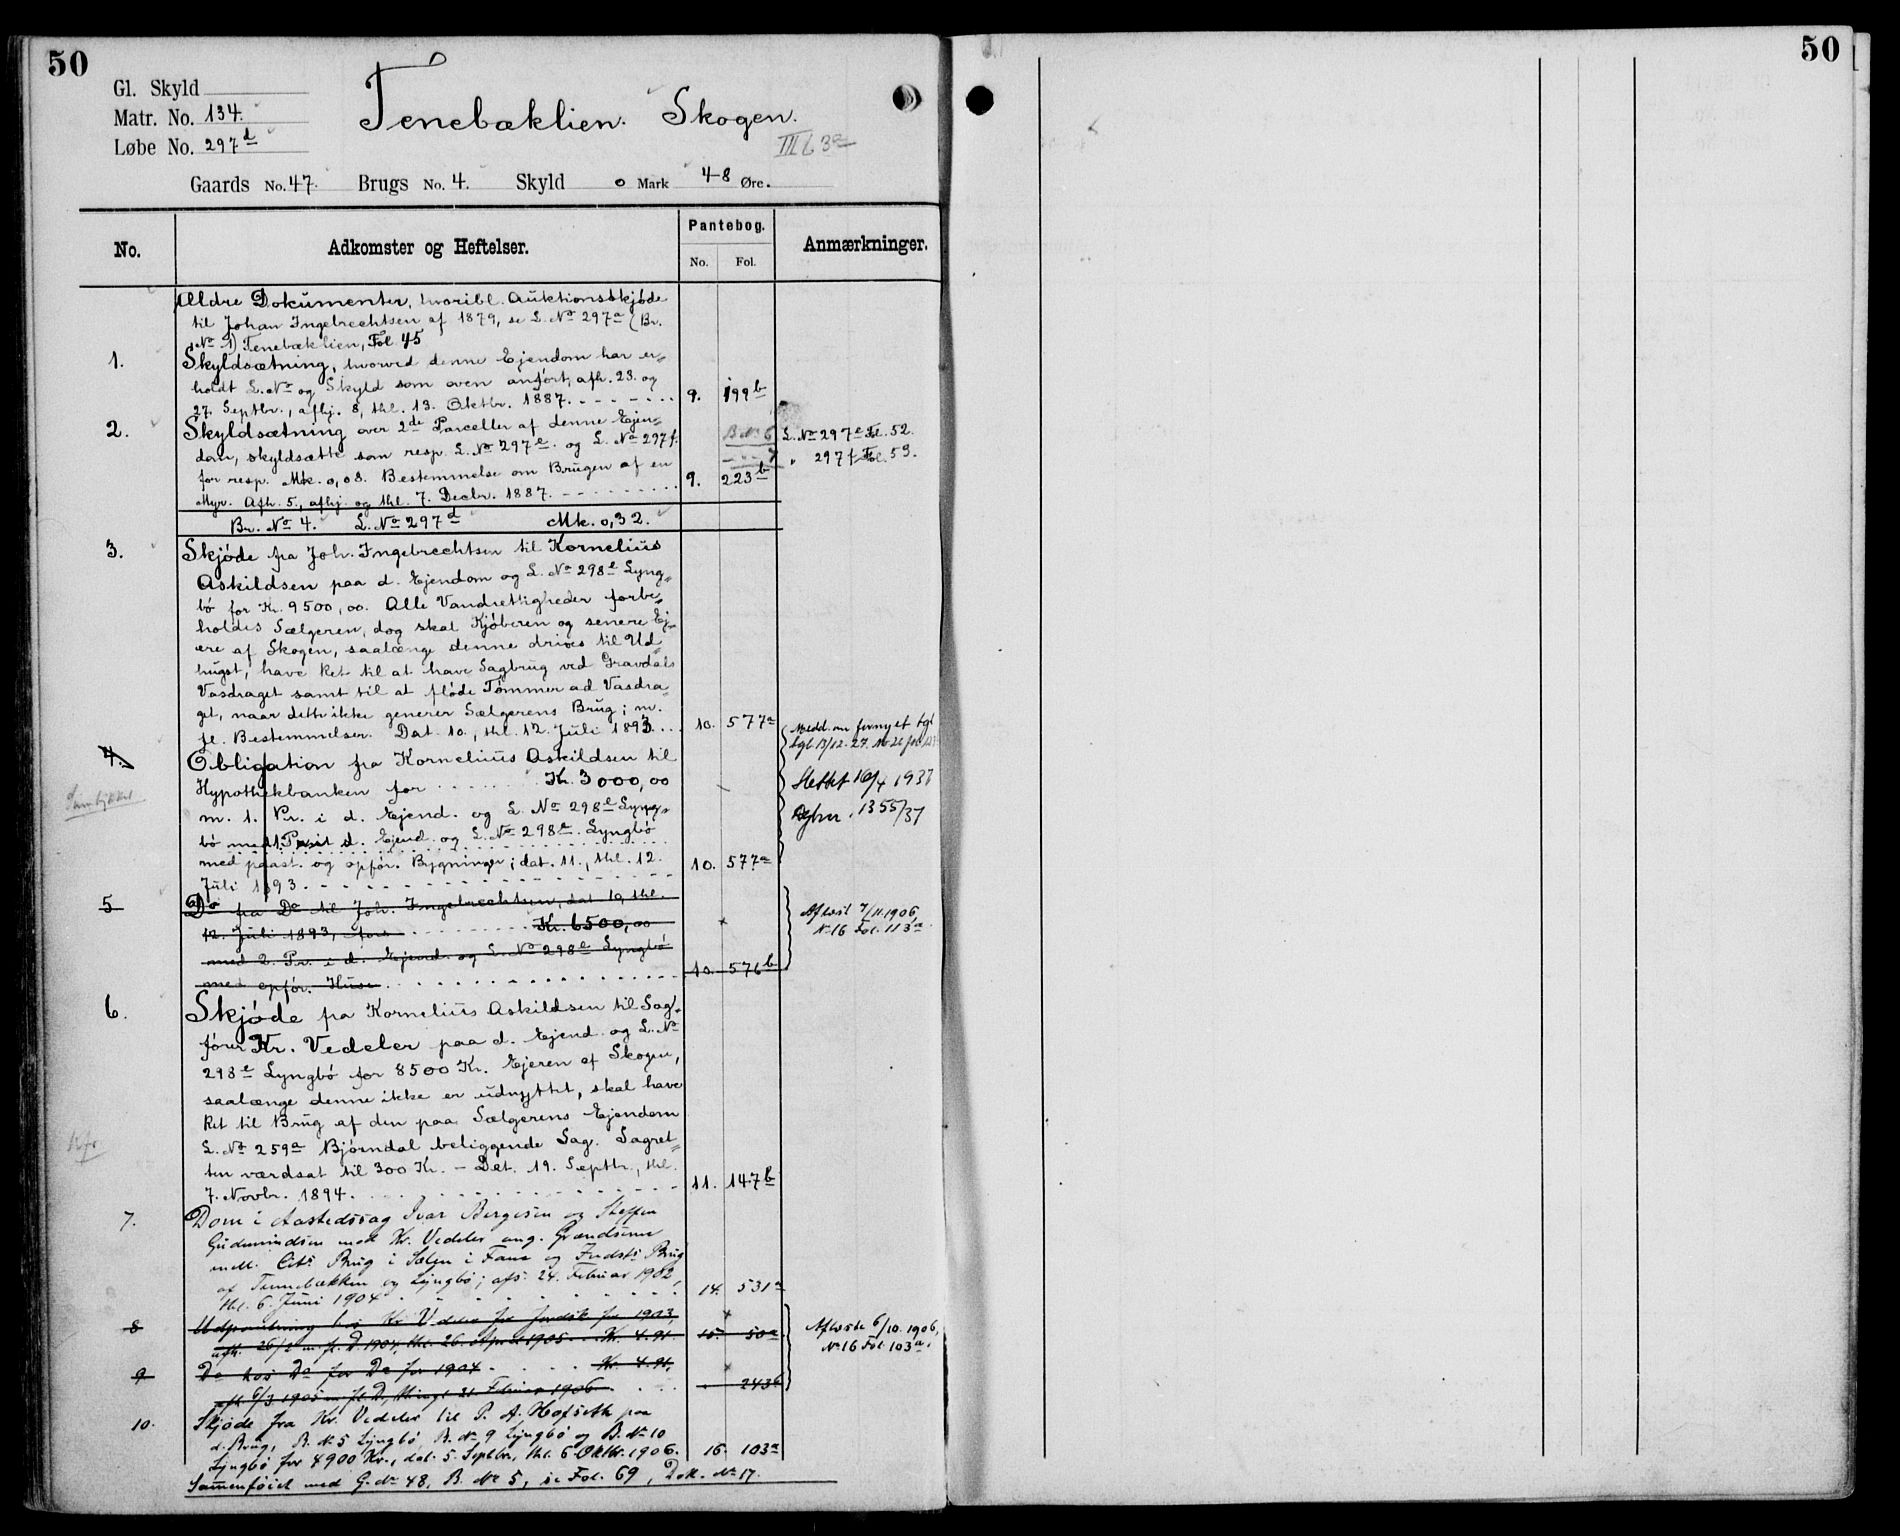 50
50
Gl. Skyld
Matr. No. 134.
Løbe No. 297d
Tenebæklien. Skogen.
III b 3a
Gaards No. 47. Brugs No. 4. Skyld 0 Mark 48 Øre.
No. Adkomster og Heftelser. Pantebog. Anmærkninger.
No. Fol.
Ældre Dokumenter, hvoribl. Auktionsskjøde
til Johan Ingebrechtsen af 1879, se L. No 297a (Br.
No 1) Tenebæklien, Fol. 45
1. Skyldsætning, hvorved denne Ejendom har er=
holdt L. No og Skyld som oven anført; afh. 23. og
27. Septbr., afhj. 8, thl. 13. Oktbr. 1887. 9. 199b
2. Skyldsætning over 2de Parceller af denne Ejen=
dom, skyldsatte som resp. L. No 297e. og L. No 297f. B No 6 L. No 297e Fol. 52.
for resp. Mk. 0,08. Bestemmelse om Brugen af en 7 " 297f Fol. 53.
Myr. Afh. 5., afhj. og thl. 7. Decbr. 1887. 9. 223b
Br. No 4. L. No 297d Mk. 0,32.
3. Skjøde fra Joh. Ingebrechtsen til Kornelius
Askildsen paa d. Ejendom og L. No 298e Lyng=
bø for Kr. 9500,00. Alle Vandrettigheder forbe=
holdes Sælgeren, dog skal Kjøberen og senere Ej=
ere af Skogen, saalænge denne drives til Ud=
hugst, have Ret til at have Sagbrug ved Gravdals
Vasdraget samt til at fløde Tømmer ad Vasdra=
get, naar dette ikke generer Sælgerens Brug; m.
fl. Bestemmelser. Dat. 10., thl. 12. Juli 1893. 10. 577a
Medd. om fornyet tgl
tgl 13/12-27. No 26 fol
4. Obligation fra Kornelius Askildsen til
Hypothekbanken for Kr. 3000,00
Slettet 16/4 1937
Dgbnr. 1355/37
m. 1. Pr. i d. Ejend. og L. No 298e Lyng=
bø med 1. Pr. i d. Ejend. og L. No 298e. Lyngbø
med paast. og opför. Bygninger; dat. 11., thl. 12.
Juli 1893. 10. 577a
5 Do fra Do til Joh. Ingebrechtsen, dat 10, thl.
12. Juli 1893, for Kr. 6500,00
Aflæst 7/11.1906,
No 16 Fol. 113a
med 2. Pr. i d. Ejend. og L. No 298e Lyngbø
med opför. Huse 10. 576b
6. Skjøde fra Kornelius Askildsen til Sag=
fører Kr. Vedeler paa d. Ejend. og L. No
298e Lyngbø for 8500 Kr. Ejeren af Skogen,
saalænge denne ikke er udnyttet, skal have
Ret til Brug af den paa Sælgerens Ejendom
L. No 259a Bjørndal beliggende Sag. Sagret=
ten værdsat til 300 Kr. - Dat. 19. Septbr., thl.
7. Novbr. 1894. 11. 147b
7. Dom i Aastedssag Ivar Birgesen og Steffen
Gudmundsen mod Kr. Vedeler ang. Grændserne
mell. Cits Brug i Sælen i Fane og Indsts Brug
af Tennebækken og Lyngbø; afs. 24. Februar 1902,
thl. 6. Juni 1904 14. 531a
8 Udpantning hos Kr Vedeler for Jordsk for 1903,
afh. 26/2 m. fl. D. 1904, thl. 26. April 1905 Kr. 4.91. 15. 50a
Aflæste 6/10. 1906,
No 16 Fol. 103a.
9 Do hos Do for Do for 1904 Kr. 4.91,
afh 6/3 1905 m. fl. D., thingl 21. Februar 1906 243b
10. Skjøde fra Kr. Vedeler til P. A. Hofseth paa
d. Brug, B. No 5 Lyngbø, B. No 9 Lyngbø og B. No 10
Lyngbø for 4900 Kr., dat. 5. Septbr, thl. 6 Oktbr. 1906. 16. 103a
Sammenføiet med G. No 48, B. No 5, se Fol. 69, Dok. No 17.